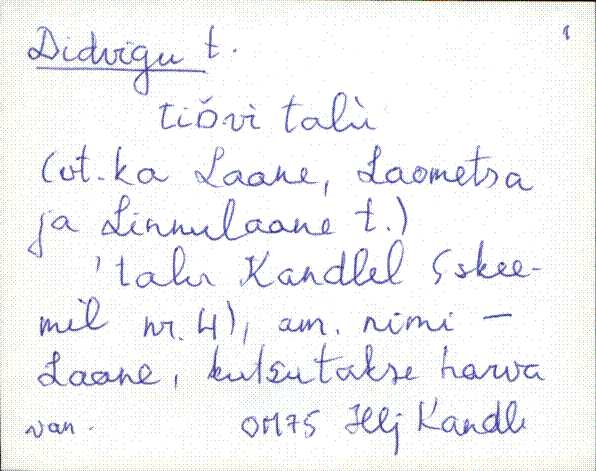 Didvigu t.
talu
(vt. ka Laane, Laometsa
ja Linnulaane t.)
'talu Kandlel (skee-
mil nr. 4), am. nimi –
Laane, kutsutakse harva
van. OM75 Kandle